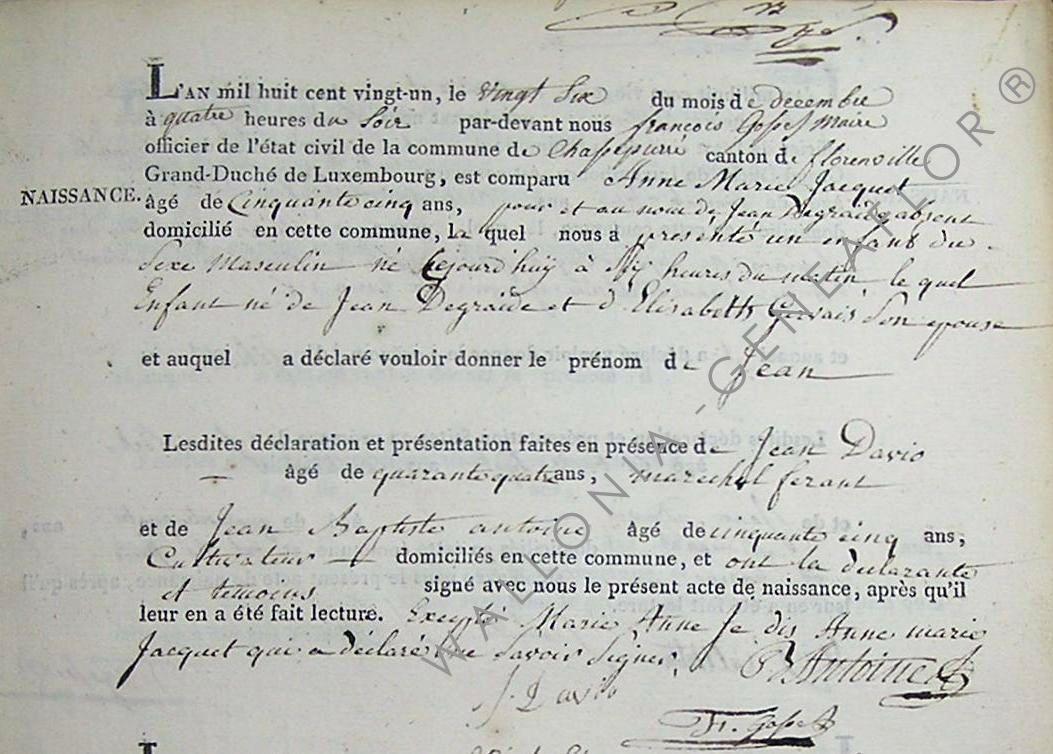 L'AN mil huit cent vingt-un, le vingt Six du mois de decembre
à quatre heures du Soir par-devant nous françois Gosset Maire
officier de l'état civil de la commune de Chassepierre canton de florenville
Grand-Duché de Luxembourg, est comparu Anne Marie Jacquet
NAISSANCE. âgé de Cinquante cinq ans, pour et au nom de Jean Degraide absent
domicilié en cette commune, la quel nous a présenté un enfant du
Sexe Masculin né cejourd'huy à Six heures du matin le quel
Enfant né de Jean Degraide et d'Elisabeth Gervais Son epouse
et auquel a déclaré vouloir donner le prénom de Jean
Lesdites déclaration et présentation faites en présence de Jean Davio
âgé de quarante quatre ans, marechal ferant
et de Jean Baptiste antoine âgé de cinquante cinq ans,
Cultivateur domiciliés en cette commune, et ont la déclarante
et temoins signé avec nous le présent acte de naissance, après qu'il
leur en a été fait lecture. Excepté Marie Anne Je dis Anne marie
Jacquet qui a déclaré ne Savoir Signer. Antoine
J. Davio
Fr. Gosset
WALLONIA-GENEAFLOR ®